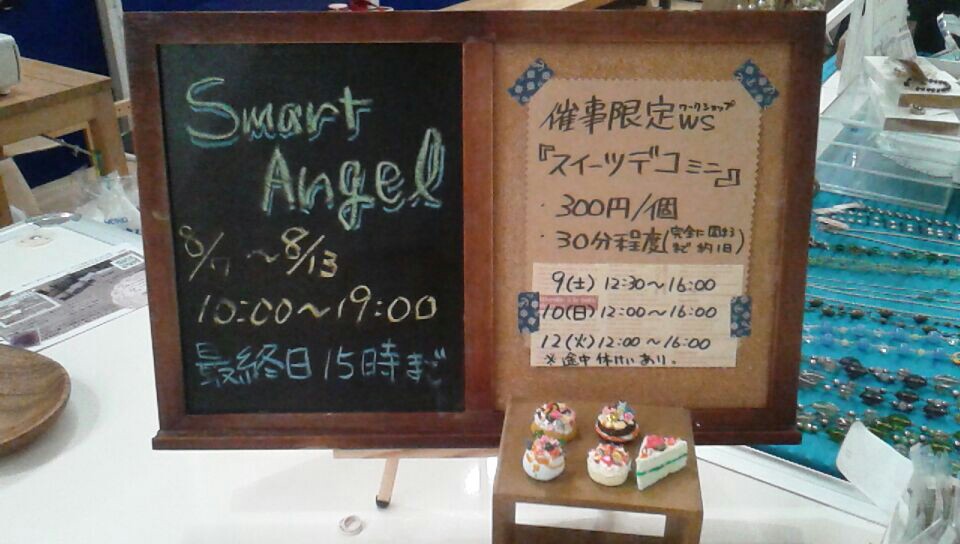 Smart
Angel
8/7〜8/13
10:00〜19:00
最終日15時まで
催事限定WS
ワークショップ
『スイーツデコミニ』
・300円/個
・30分程度(完全に固まるまで約1日)
9(土) 12:30〜16:00
10(日) 12:00〜16:00
12(火) 12:00〜16:00
※途中休けいあり。